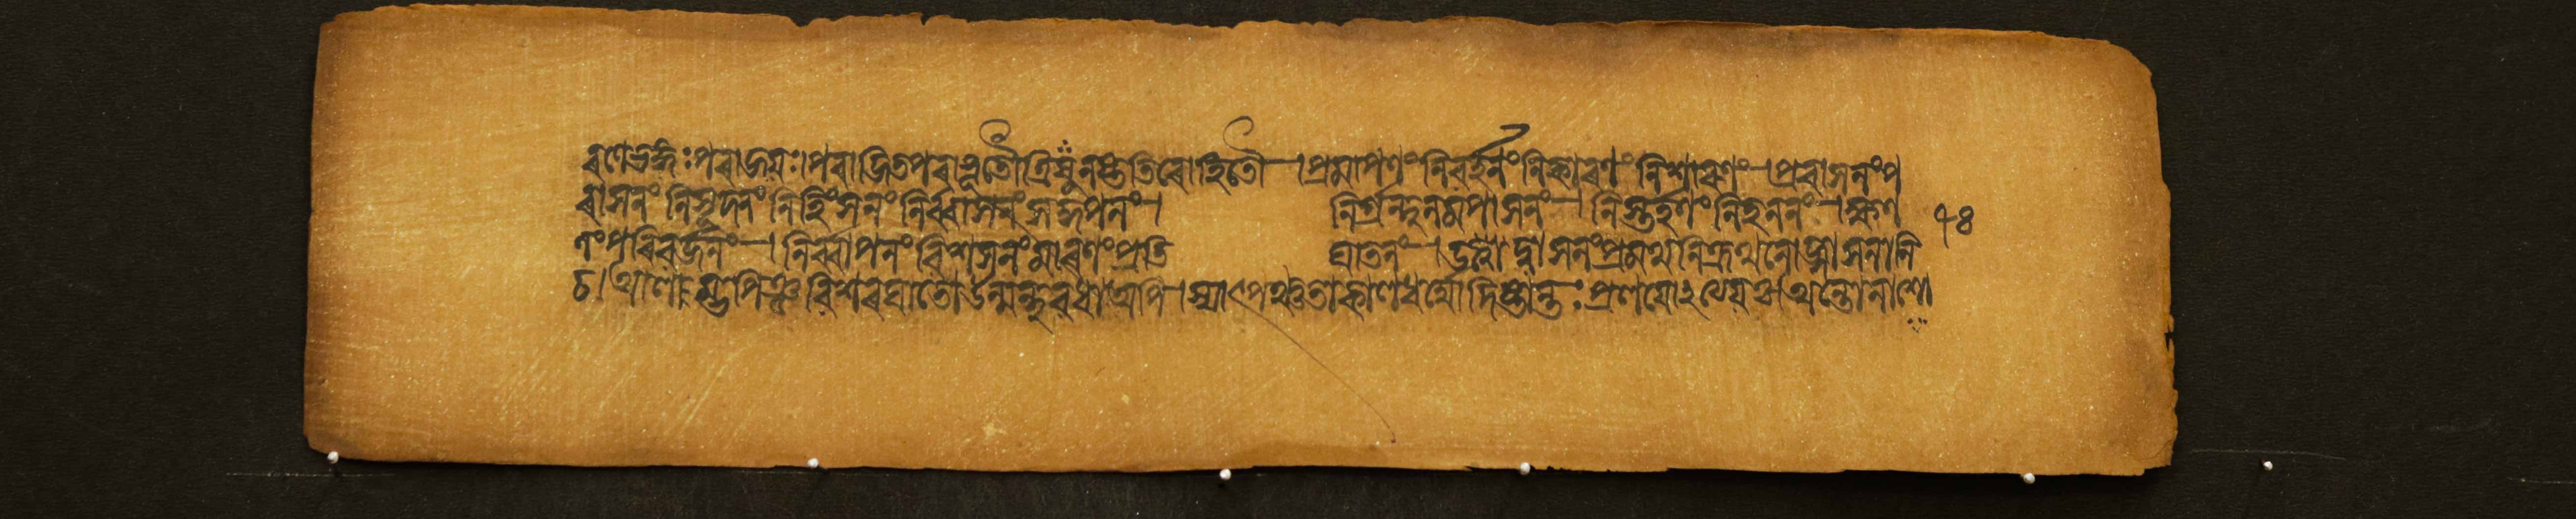 ৰণেভঙ্গঃপৰাজয়ঃ।পৰাজিতপৰাভূতৌত্রিষুনষ্টতিৰোহিতৌ।প্রমাপণংনিবর্হনংনিকাৰণংনিশাৰণং।প্রবাসনংপ
ৰাসনংনিসূদনংনিহিংসনংনির্ব্বাসনংসংজ্ঞপনং। নির্গ্রন্থনমপাসনং।নিস্তর্হণংনিহননং।ক্ষণ ৭৪
ণংপৰিবর্জনং।নির্ব্বাপনংবিশসনংমাৰণংপ্রতি ঘাতনং।উদ্বাসনংপ্রমথনিক্রথনোজ্জাসনানি
চ।আলম্ভপিঞ্জবিশৰঘাতোউন্মন্থবধাঅপি।স্যাৎপঞ্চতাকালধর্ম্মোদিষ্টান্তঃপ্রলয়োঽথেয়ঞ।অন্তোনাশো